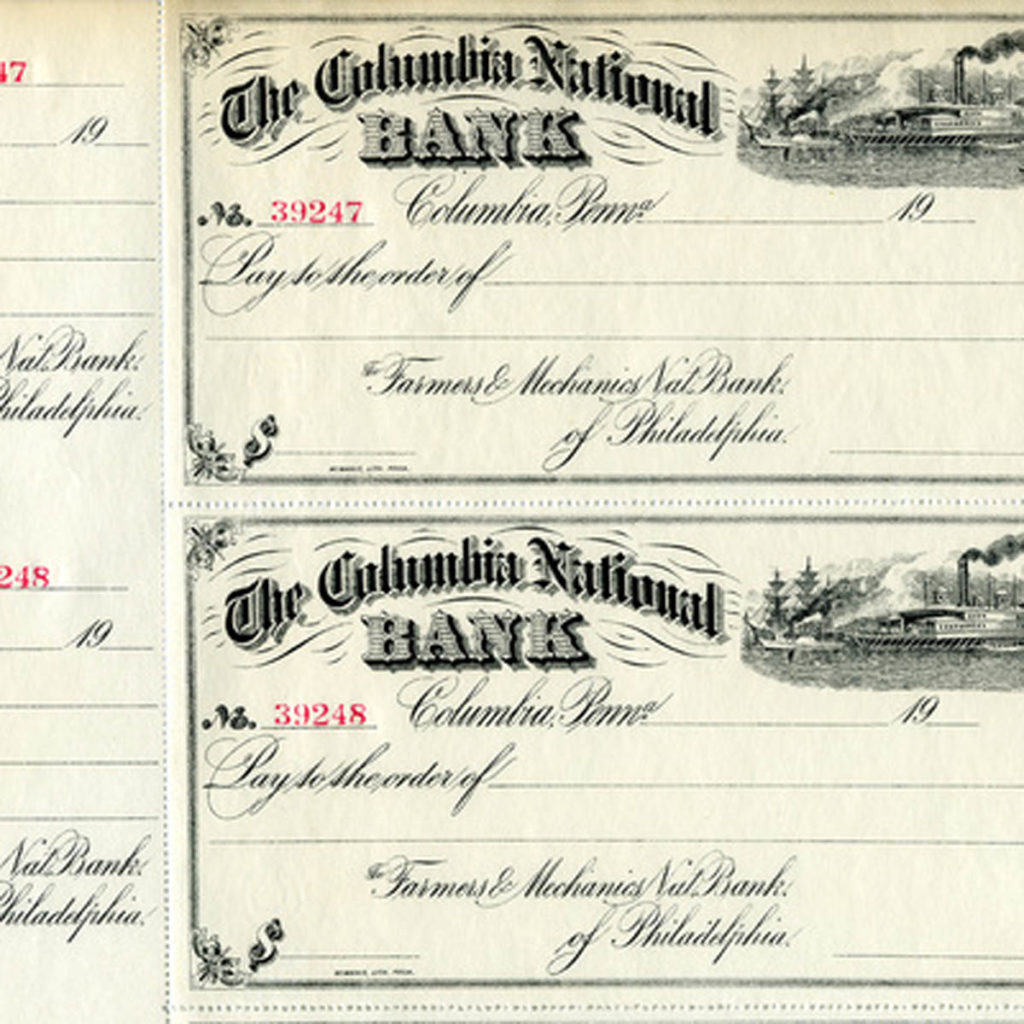 47
19
Nat. Bank.
Philadelphia.
The Columbia National
BANK
No. 39247 Columbia, Penna. 19
Pay to the order of
To Farmers & Mechanics Nat. Bank.
of Philadelphia.
$
248
19
Nat. Bank.
Philadelphia.
The Columbia National
BANK
No. 39248 Columbia, Penna. 19
Pay to the order of
To Farmers & Mechanics Nat. Bank.
of Philadelphia.
$